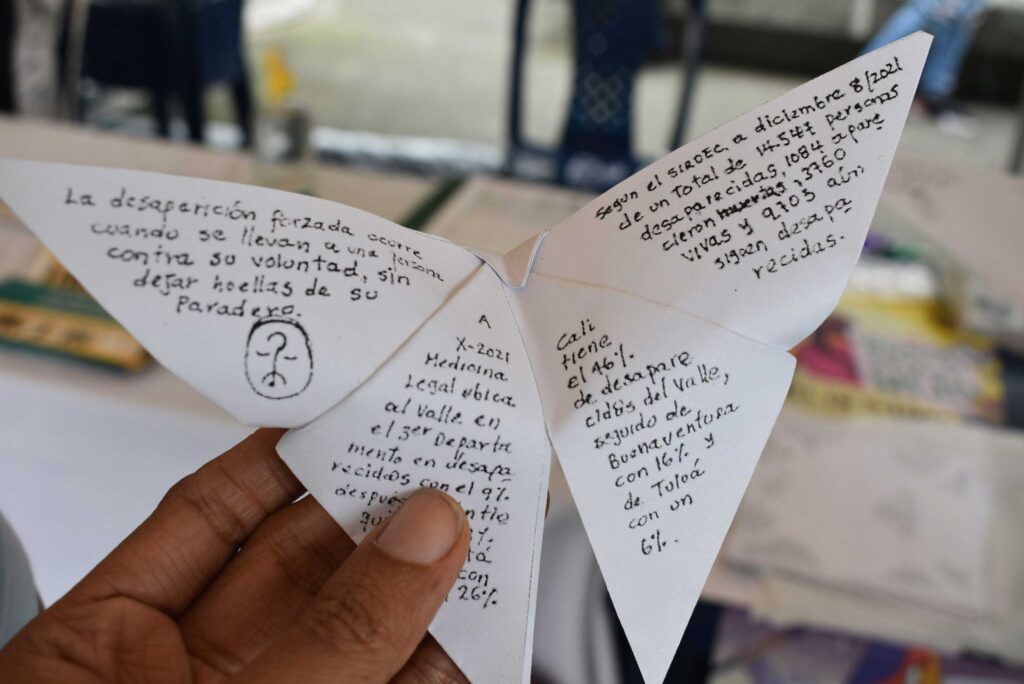 La desaparición forzada ocurre
cuando se llevan a una persona
contra su voluntad, sin
dejar huellas de su
Paradero.
A
X-2021
Medicina
Legal ubica
al Valle en
el 3er Departa
mento en desapa
recidos con el 9%
despues
%
con
26%
Cali
tiene
el 46%
de desapare
cidos del Valle,
seguido de
Buenaventura
con 16% y
de Tuluá
con un
6%.
Según el SIRDEC, a diciembre 8/2021
de un Total de 14.547 personas
desaparecidas, 1084 apare
cieron muertas, 3760
vivas y 9.703 aún
siguen desapa
recidas.